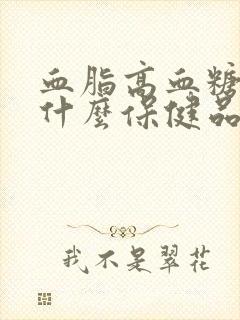 血脂高血糖
什麼保健品
我不是翠花